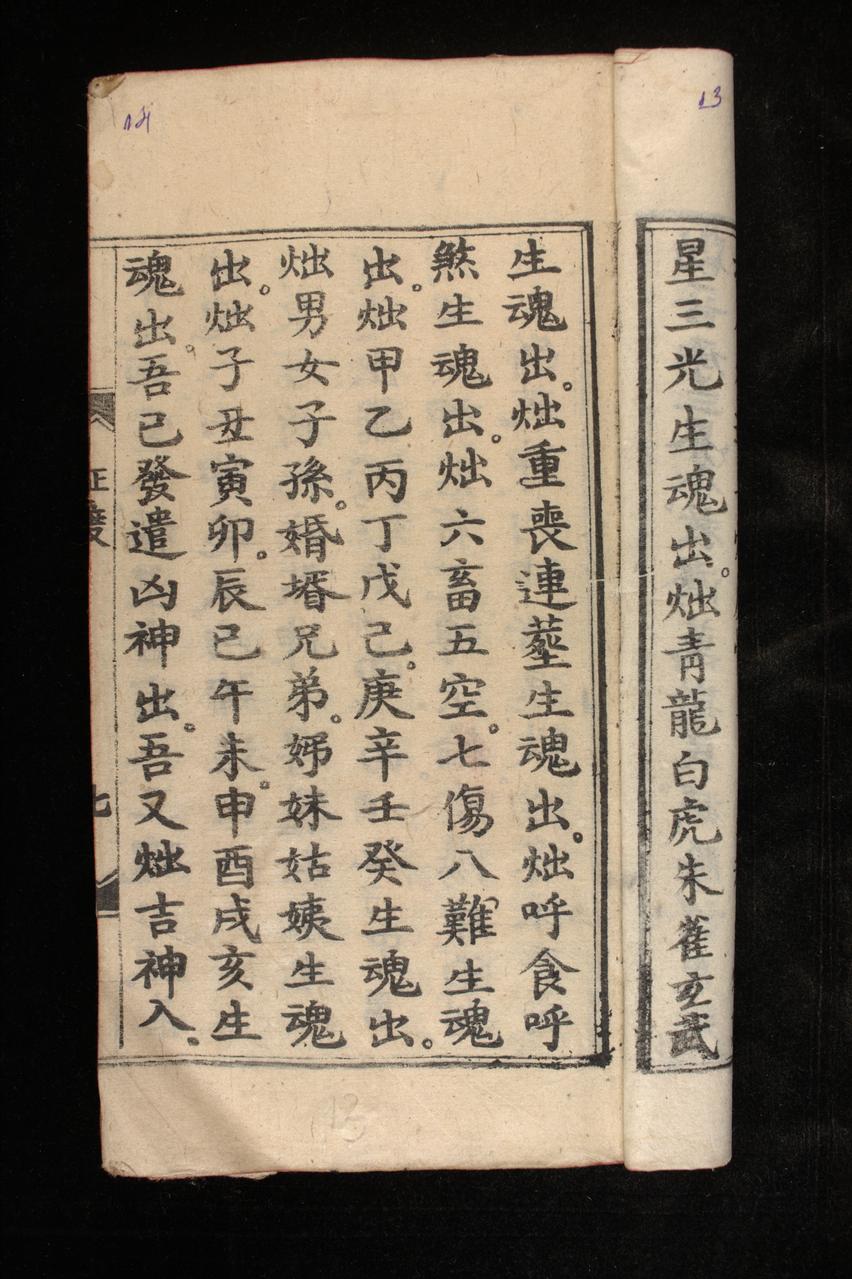 13
星三光生魂出。炪青龍白虎朱雀玄武
14
生魂出。炪重喪連塟生魂出。炪呼食呼
煞生魂出。炪六畜五空。七傷八難生魂
出。炪甲乙丙丁戊己。庚辛壬癸生魂出。
炪男女子孫。婚壻兄弟。姊妹姑姨生魂
出。炪子丑寅卯。辰巳午未。申酉戌亥生
魂出。吾已發遣凶神出。吾又炪吉神入。
七
13